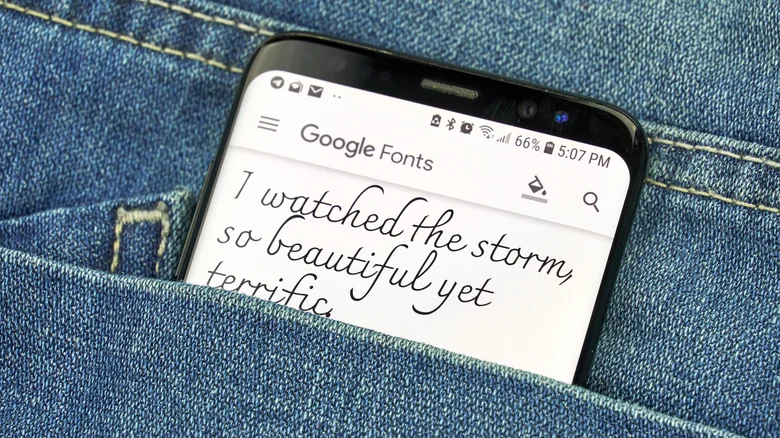 66% 5:07 PM
Google Fonts
I watched the storm,
so beautiful yet
terrific.